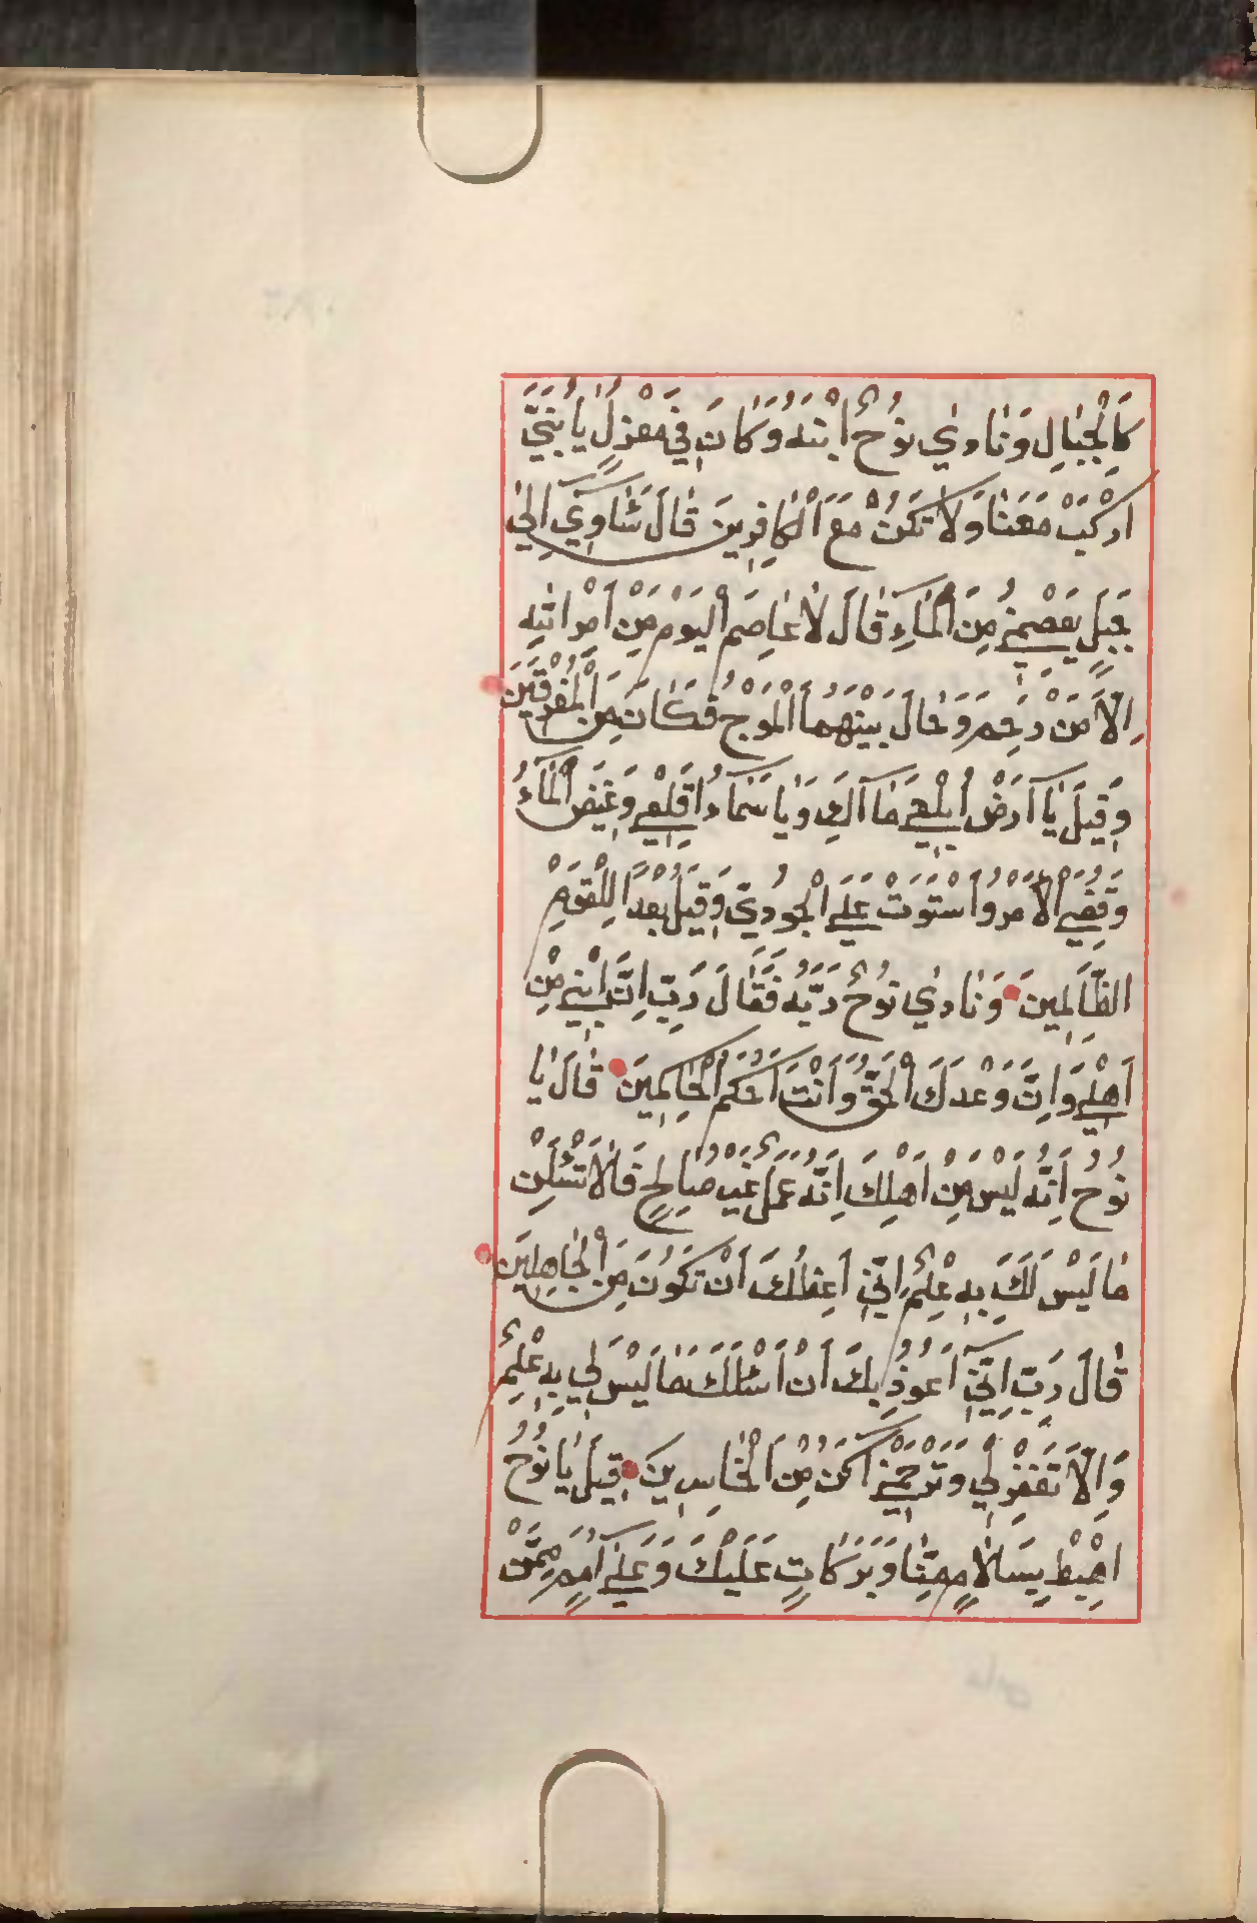 كَالْجِبَالِ وَنَادٰي نُوحٌ ابْنَهُ وَكَانَ فِي مَعْزِلٍ يَا بُنَيَّ
ارْكَبْ مَعَنَا وَلَا تَكُنْ مَعَ الْكَافِرِينَ قَالَ سَئَاوِي اِلٰي
جَبَلٍ يَعْصِمُنِي مِنَ الْمَاءِ قَالَ لَا عَاصِمَ الْيَوْمَ مِنْ اَمْرِ اللّٰهِ
اِلَّا مَنْ رَحِمَ وَحَالَ بَيْنَهُمَا الْمَوْجُ فَكَانَ مِنَ الْمُغْرَقِينَ
وَقِيلَ يَا اَرْضُ ابْلَعِي مَا اَكِ وَيَا سَمَاءُ اَقْلِعِي وَغِيضَ الْمَاءُ
وَقُضِيَ الْاَمْرُ وَاسْتَوَتْ عَلَي الْجُودِيِّ وَقِيلَ بُعْدًا لِلْقَوْمِ
الظَّالِمِينَ وَنَادٰي نُوحٌ رَبَّهُ فَقَالَ رَبِّ اِنَّ ابْنِي مِنْ
اَهْلِي وَاِنَّ وَعْدَكَ الْحَقُّ وَاَنْتَ اَحْكَمُ الْحَاكِمِينَ قَالَ يَا
نُوحُ اِنَّهُ لَيْسَ مِنْ اَهْلِكَ اِنَّهُ عَمَلٌ غَيْرُ صَالِحٍ فَلَا تَسْئَلْنِ
مَا لَيْسَ لَكَ بِهِ عِلْمٌ اِنِّي اَعِظُكَ اَنْ تَكُونَ مِنَ الْجَاهِلِينَ
قَالَ رَبِّ اِنِّي اَعُوذُ بِكَ اَنْ اَسْئَلَكَ مَا لَيْسَ لِي بِهِ عِلْمٌ
وَاِلَّا تَغْفِرْ لِي وَتَرْحَمْنِي اَكُنْ مِنَ الْخَاسِرِينَ قِيلَ يَا نُوحُ
اهْبِطْ بِسَلَامٍ مِنَّا وَبَرَكَاتٍ عَلَيْكَ وَعَلَي اُمَمٍ مِمَّنْ